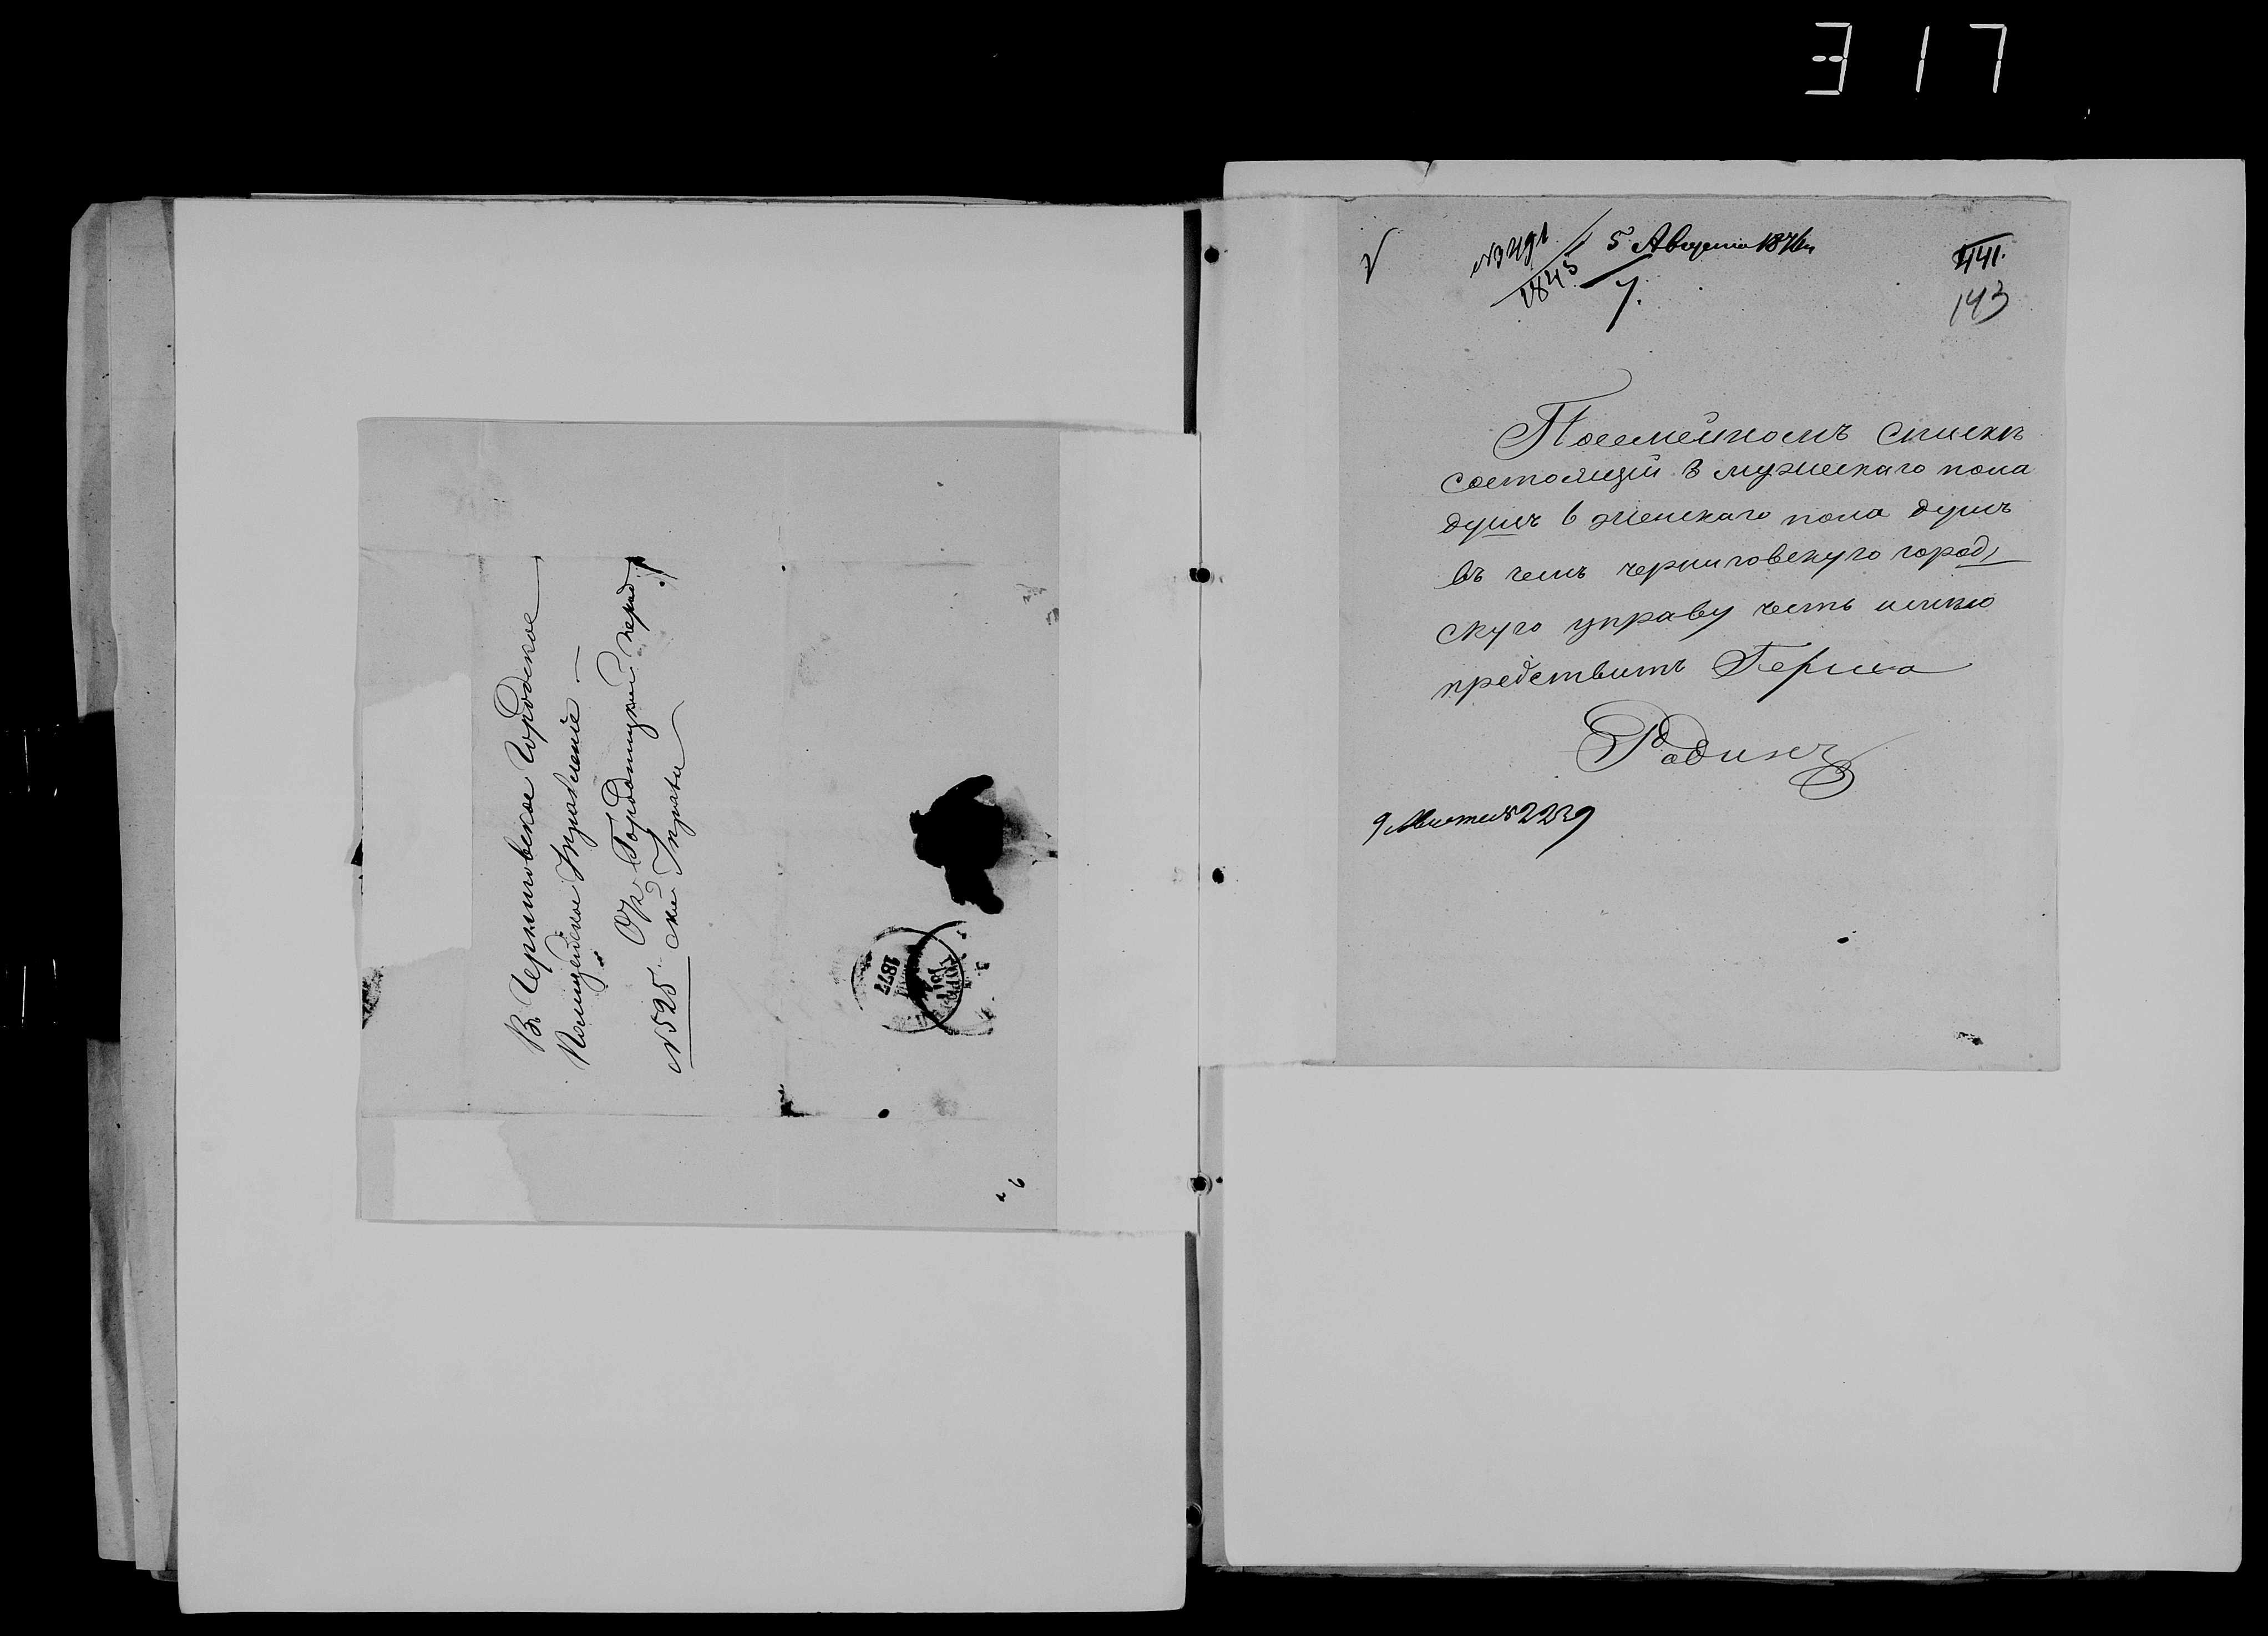 317
В Черниговское Городское
Полицейское Управление —
От Городницкой город
ской Управы
№ 525
1877
№ 3491 / 1845
5 Августа 1876
7.
441.
143
Посемейномъ спискѣ
состоящій 3 мужескаго пола
душъ 6 женскаго пола душъ
въ чемъ черниговскую город
скую управу честь имѣю
предствить Герша
Родинъ
9 Августа № 2229